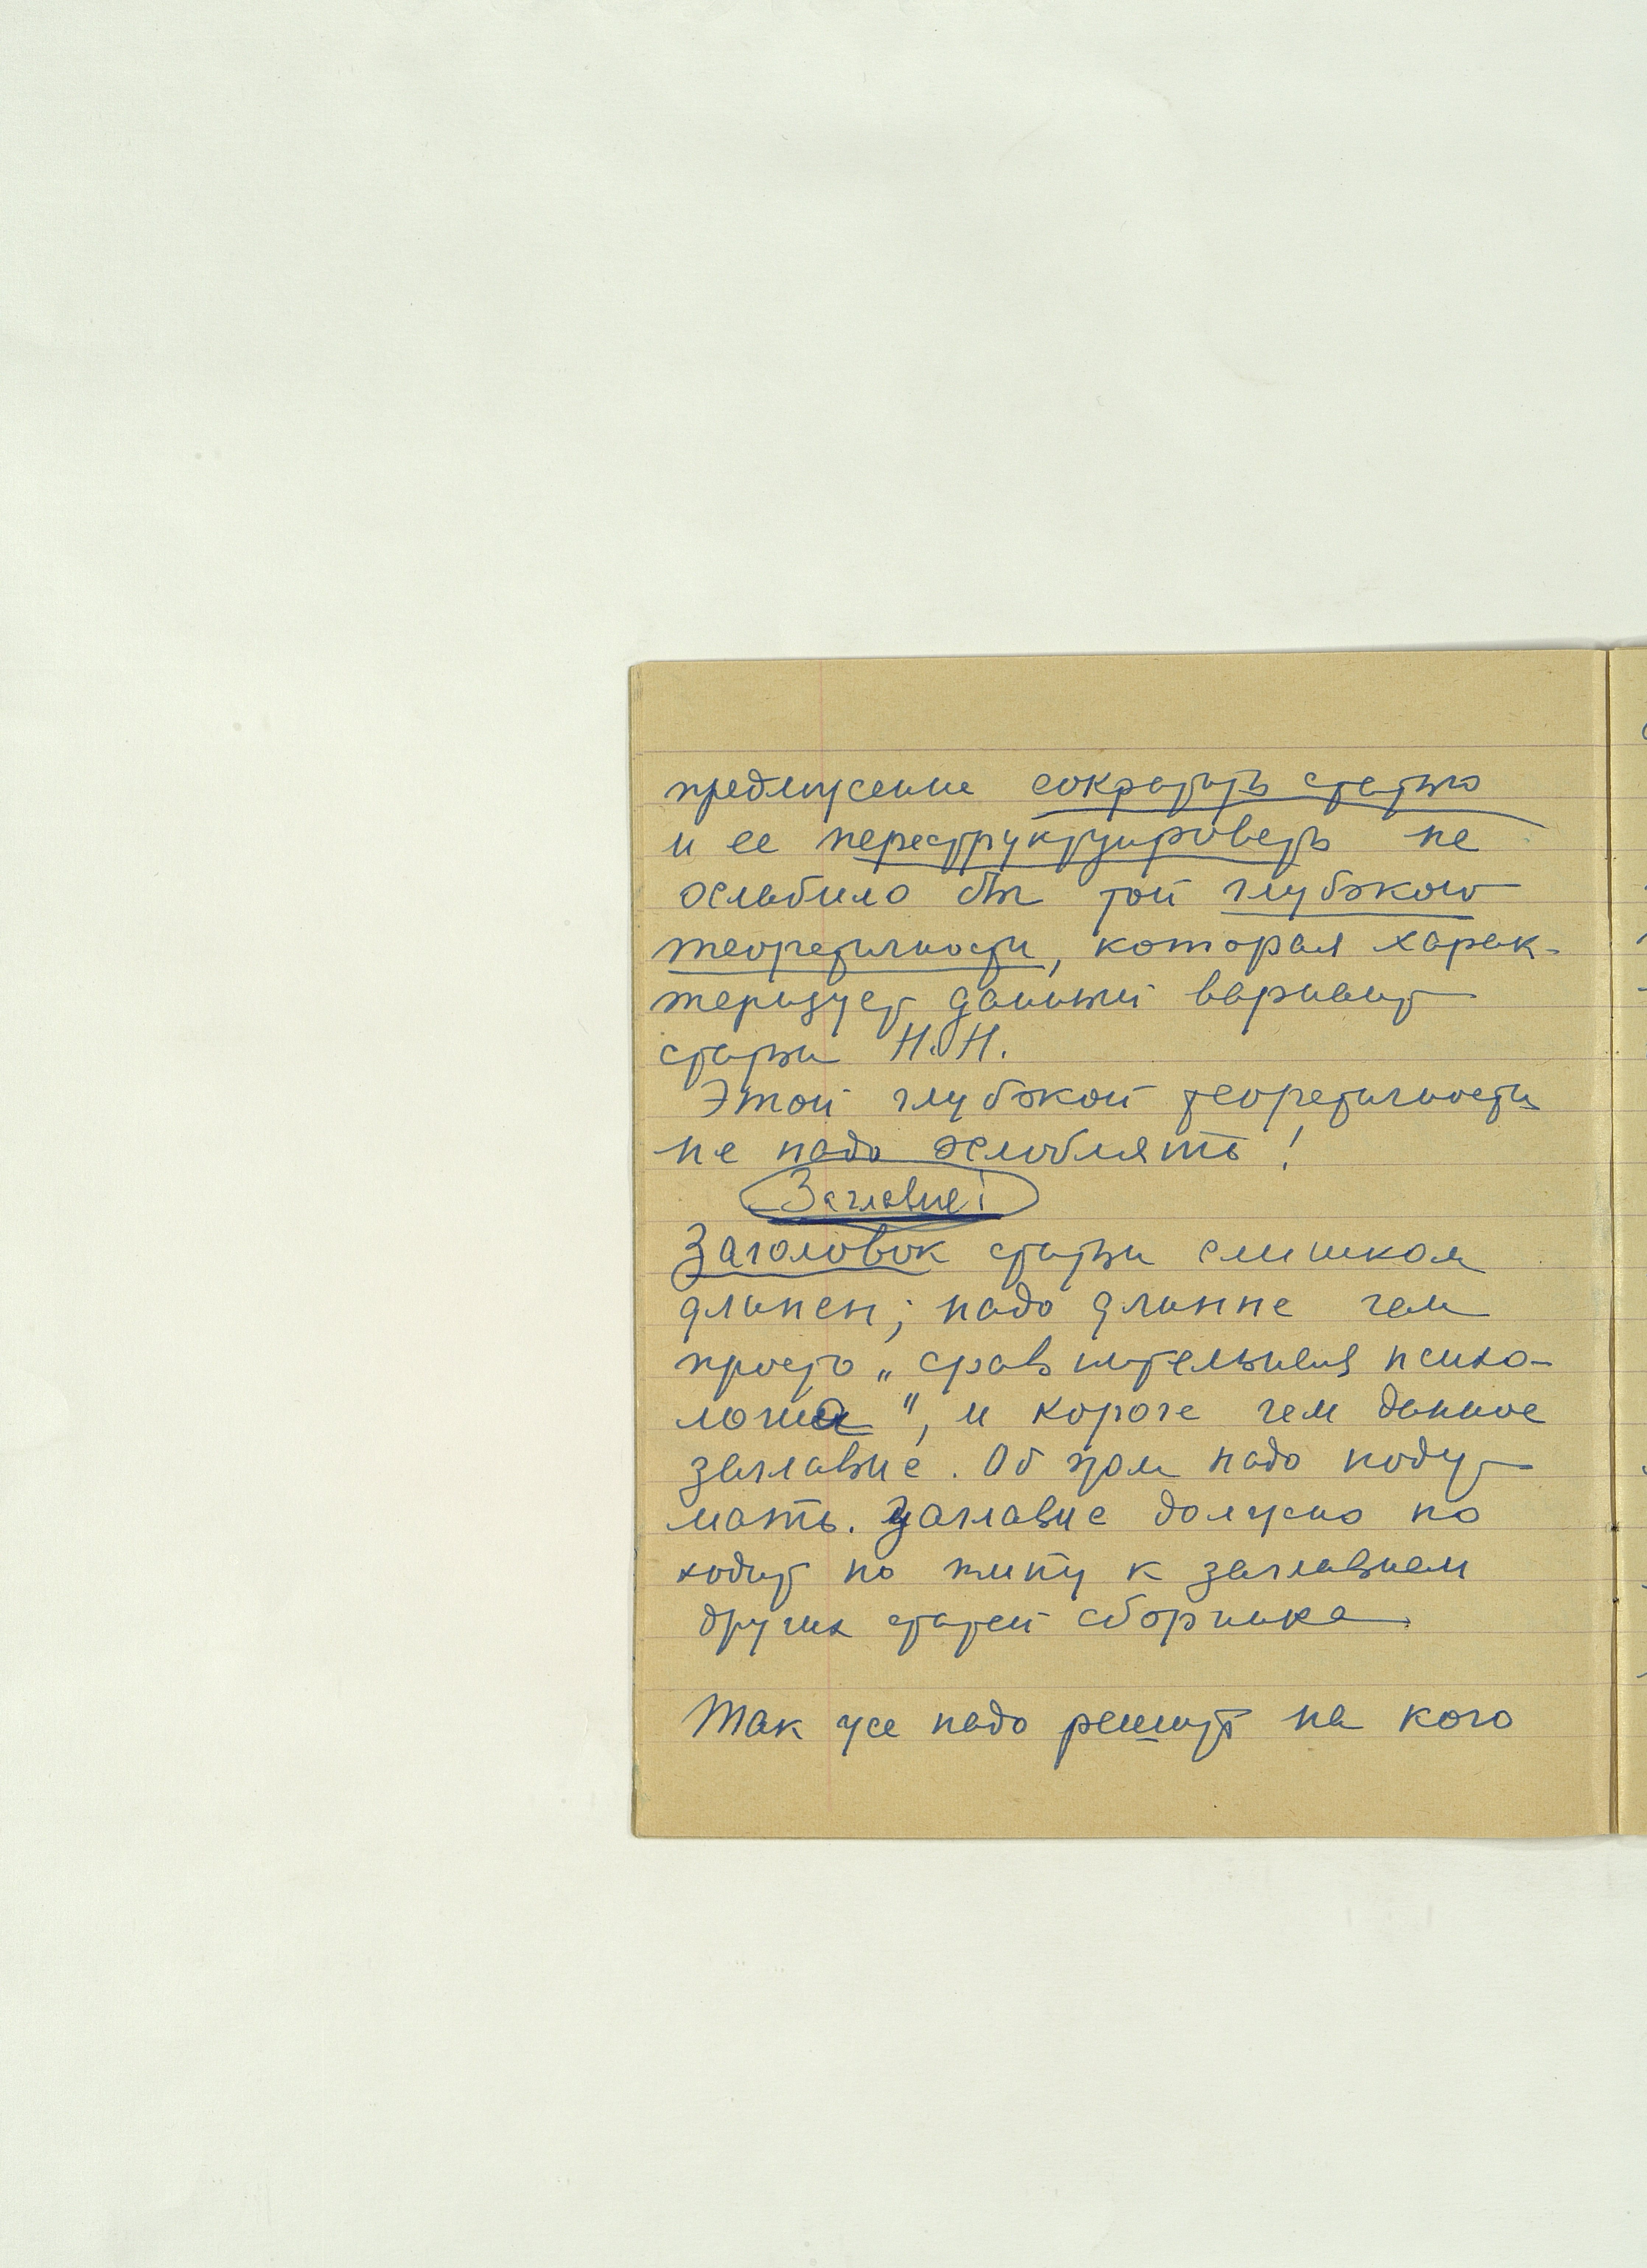 предложение сократить статью
и ее переструктуировать не
ослабило бы той глубокой
теоретичности, которая харак-
теризует данный вариант
статьи Н.Н.
Этой глубокой теоретичности
не надо ослаблять!
Заглавие!
Заголовок статьи слишком
длинен; надо длинне чем
просто „сравнительная психо-
логия", и короче чем данное
заглавие. Об этом надо поду-
мать. Заглавие должно по
ходит по типу к заглавием
других статей сборника.
Так же надо решить на кого